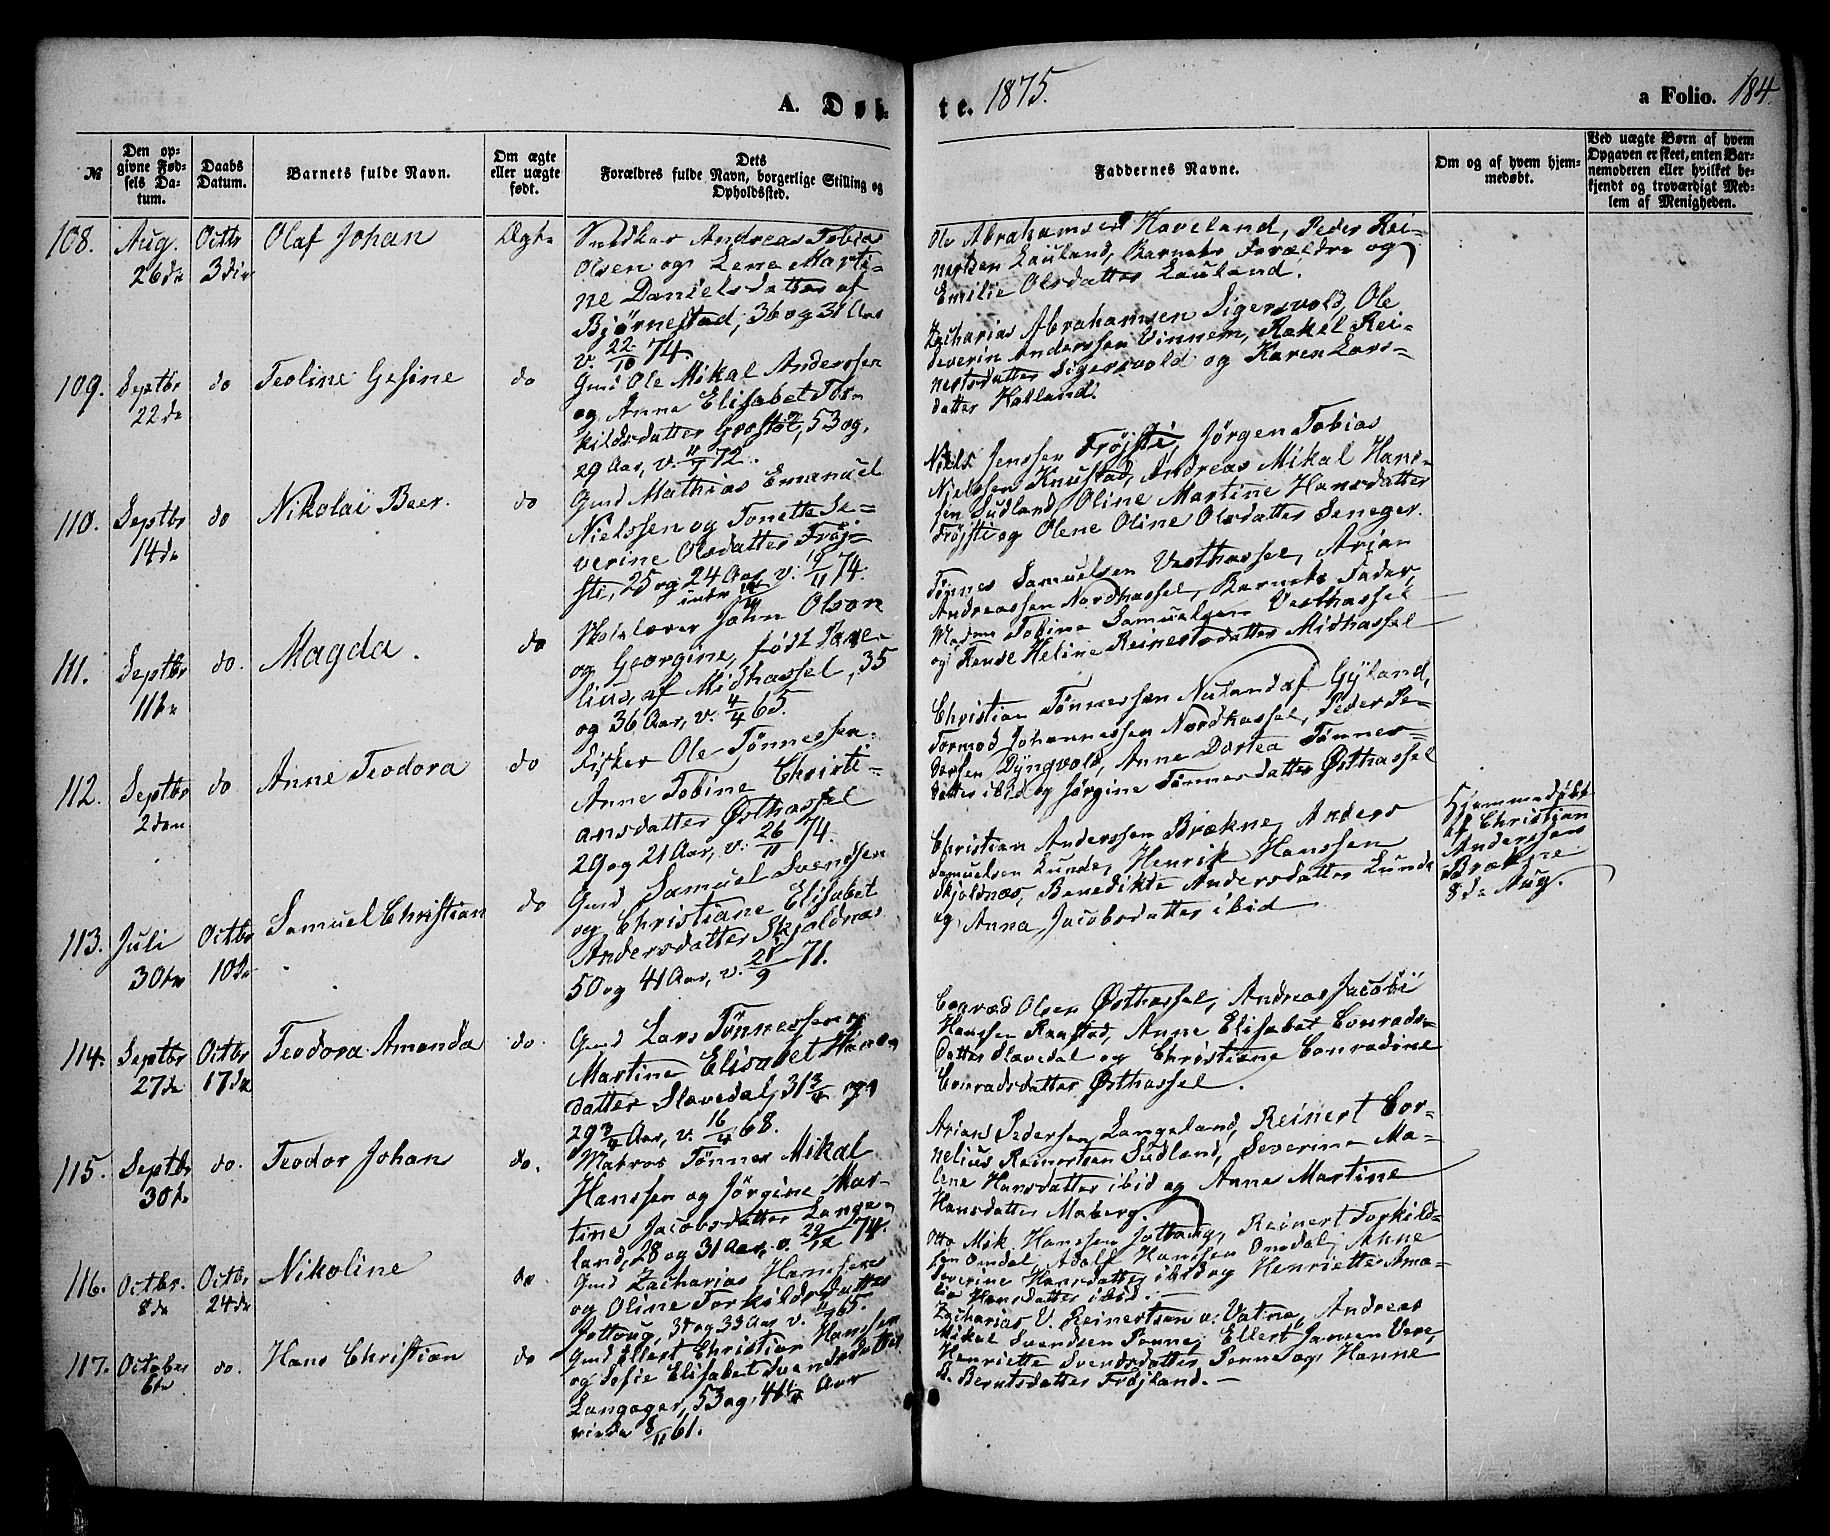 A. Døb-
te. 1875.
a Folio. 184.
№
Den op-
givne Fød-
sels Da-
tum.
Daabs
Datum.
Barnets fulde Navn.
Om ægte
eller uægte
født.
Dets
Forældres fulde Navn, borgerlige Stilling og
Opholdssted.
Faddernes Navne.
Om og af hvem hjem-
medøbt.
Ved uægte Børn af hvem
Opgaven er skeet, enten Bar-
nemoderen eller hvilket be-
kjendt og troværdigt Med-
lem af Menigheden.
108.
Aug.
26de
Octbr
3die
Olaf Johan
Ægte
Snedker Andreas Tobias
Olsen og Lene Marti-
ne Danielsdatter af
Bjørnestad, 36 og 31 Aar
v. 22/10 74.
Ole Abrahamsen Haveland, Peder Rei-
nertsen Lauland, Barnets Forældre og
Emilie Olsdatter Lauland.
109.
Septbr
22de
do
Teoline Gesine
do
Gmd Ole Mikal Anderssen
og Anne Elisabet Tor-
kildsdatter 53 og
29 Aar, v. 72.
Zacharias Abrahamsen Sigersvold, Ole
Severin Anderssen Vinnem, Rakel Rei-
nertsdatter Sigersvold og Karen Lars-
datter Halland.
110.
Septbr
14de
do
Nikolai Beer.
do
Gmd Mathias Emanuel
Nielssen og Tonette Se-
verine Olsdatter Frøj-
sti, 25 og 24 Aar v. 74.
Niels Jenssen Frøjsti, Jørgen Tobias
Nielssen Knustad, Andreas Mikal Hans-
sen Sudland, Oline Martine Hansdatter
Frøjsti og Olene Oline Olsdatter Seneger.
111.
Septbr
11te
do.
Magda.
do
John Olson
og Georgine, født
af Midhassel, 35
og 36 Aar, v. 4/4 65.
Tønnes Samuelsen Vesthassel, Arian
Andreassen Nordhassel, Barnets Fader,
Madme Tobine Samuelsen Vesthassel
og Heline Reinertsdatter Midhassel
112.
Septbr
2den
do
Anne Teodora
do
Fisker Ole Tønnessen
Anne Tobine Christi-
ansdatter Østhassel
29 og 21 Aar, v. 26/11 74.
Christian Tønnessen Nuland af Gyland,
Tormod Johannessen Nordhassel, Peder Pe-
dersen Dyngvold, Anne Dortea Tønnes-
datter ibid og Jørgine Tønnesdatter Østhassel
113.
Juli
30te
Octbr
10de
Samuel Christian
do
Gmd Samuel Svendsen
og Christiane Elisabet
Andersdatter Skjoldnæs
50 og 41 Aar, v. 71.
Christian Anderssen Brækne, Anders
Samuelsen Lunde, Henrik Hanssen
Skjoldnæs, Benedikte Andersdatter Lunde
og Anna Jacobsdatter ibid
Hjemmedøbt
af Christian
Anderssen
Brækne
8de Aug.
114.
Septbr
27de
Octbr
17de
Teodora Amanda
do.
Gmd Lars Tønnessen og
Martine Elisabet Hans-
datter Slævedal, 31 3/4 og
29 3/4 Aar, v. 16/4 68.
Conrad Olsen Østhassel, Andreas Jacobi
Hanssen Raustad, Anne Elisabet Conrads-
datter Slævedal og Christiane Conradine
Conradsdatter Østhassel.
115.
Septbr
30te
do.
Teodor Johan
do.
Matros Tønnes Mikal
Hanssen og Jørgine Mar-
tine Jacobsdatter Lange-
land, 28 og 31 Aar, v. 29/12 74.
Arian Pedersen Langeland, Reinert Cor-
nelius Reinertsen Sudland, Severine Ma-
lene Hansdatter ibid og Anne Martine
Hansdatter Maberg.
116.
Octbr.
8de
Octbr
24de
Nikoline
do
Gmd Zacharias Hanssen
og Oline Torkildsdatter
Jottoug, 34 og 33 Aar v. 65.
Otto Mik. Hanssen Jottoug, Reinert Torkild-
sen Omdal, Adolf Hanssen Omdal, Anne
Severine Hansdatter ibid og Henriette Ama-
lie Hansdatter ibid.
117.
October
6te
do.
Hans Christian
do
Gmd Ellert Christian Hanssen
og Sofie Elisabet Svendsdatter
Langager, 53 og 41 1/2 Aar
viede 8/11 61.
Zacharias V. Reinertsen v. Vatne, Andreas
Mikal Svendsen Penne, Ellert Jansen Vere,
Henriette Svendsdatter Penne og Hanne
B. Berntsdatter Frøjland.